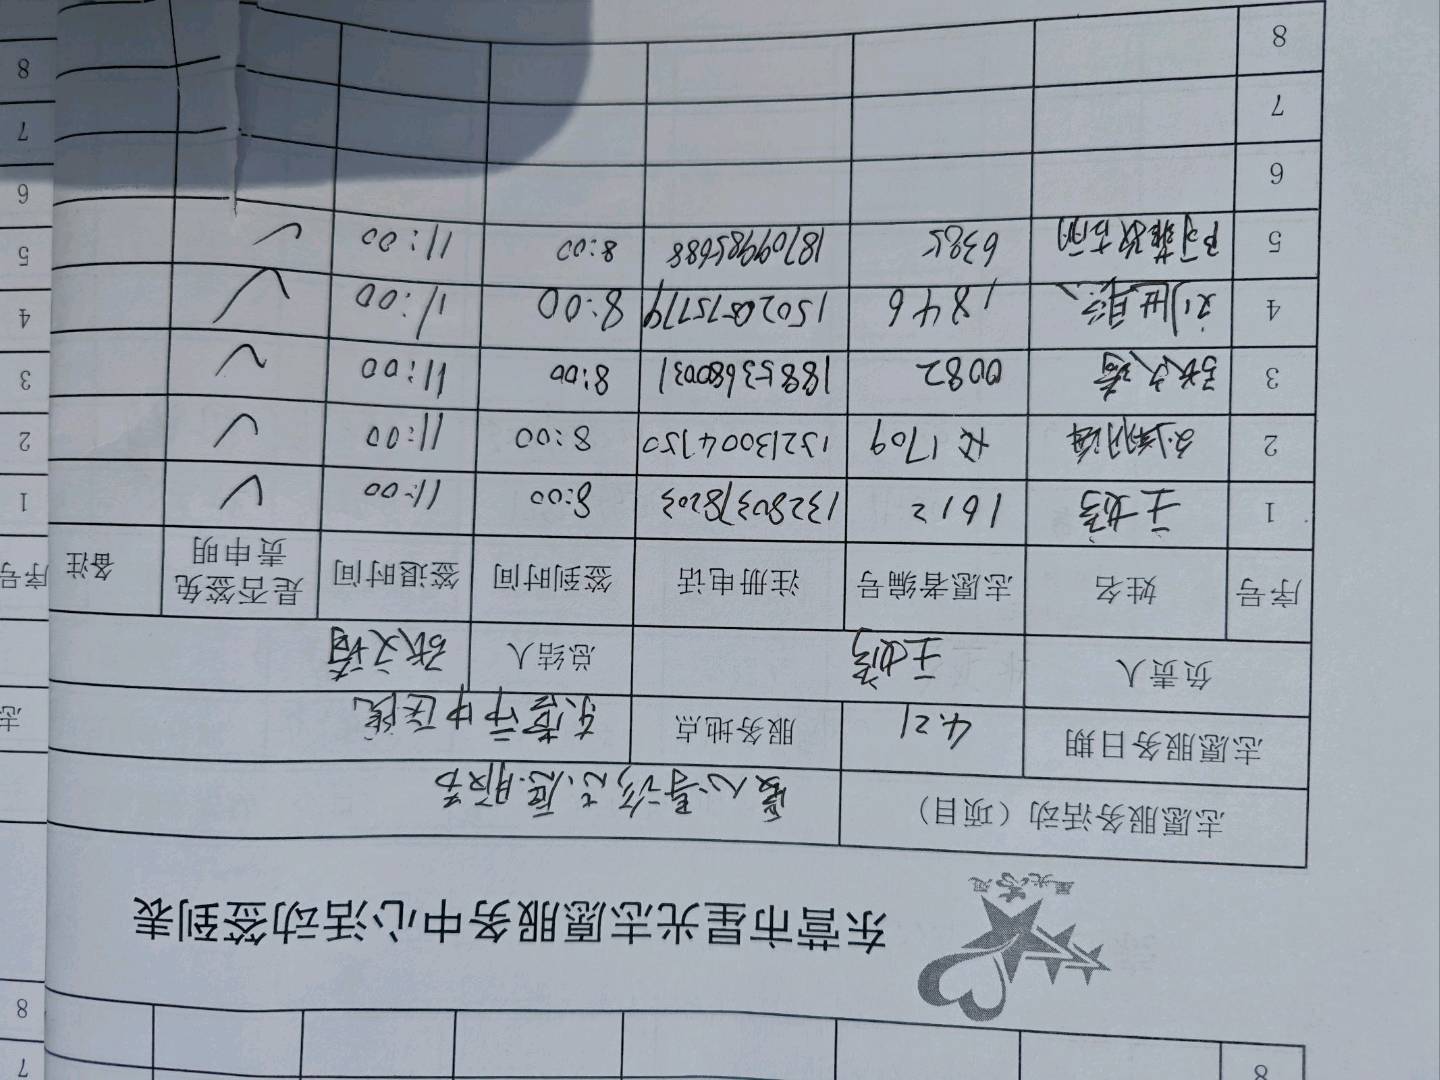 东营市星光志愿服务中心活动签到表
志愿服务活动（项目） 爱心导诊志愿服务
志愿服务日期 4.21 服务地点 东营市中医院
负责人 王婷 总结人 张文倩
序号 姓名 志愿者编号 注册电话 签到时间 签退时间 是否签免责申明 备注
1 王婷 1612 13280378203 8:00 11:00 ✓
2 1709 13213004750 8:00 11:00 ✓
3 张文倩 0082 18853680031 8:00 11:00 ✓
4 1846 15020575779 8:00 11:00 ✓
5 6385 18709985688 8:00 11:00 ✓
6
7
8